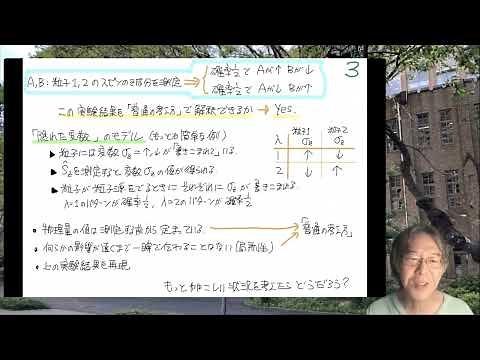 3
A,B:粒子1,2のスピンのz成分を測定 → 確率½で Aが↑ Bが↓
確率½で Aが↓ Bが↑
この実験結果を「普通の考え方」で解釈できるか → Yes.
「隠れた変数」のモデル (もっとも簡単な例)
▶ 粒子には変数 σz = ↑,↓が「書きこまれて」いる
▶ Ŝzを測定すると変数σzの値が得られる
▶ 粒子が粒子源をでるときにそれぞれにσzが書きこまれる
λ=1のパターンが確率½, λ=2のパターンが確率½
λ 粒子1 σz 粒子2 σz
1 ↑ ↓
2 ↓ ↑
• 物理量の値は測定以前から定まっている
• 何らかの影響が遠くまで一瞬で伝わることはない (局所性)
→ 「普通の考え方」
• 上の実験結果を再現
もっとややこしい状況を考えたらどうだろう?